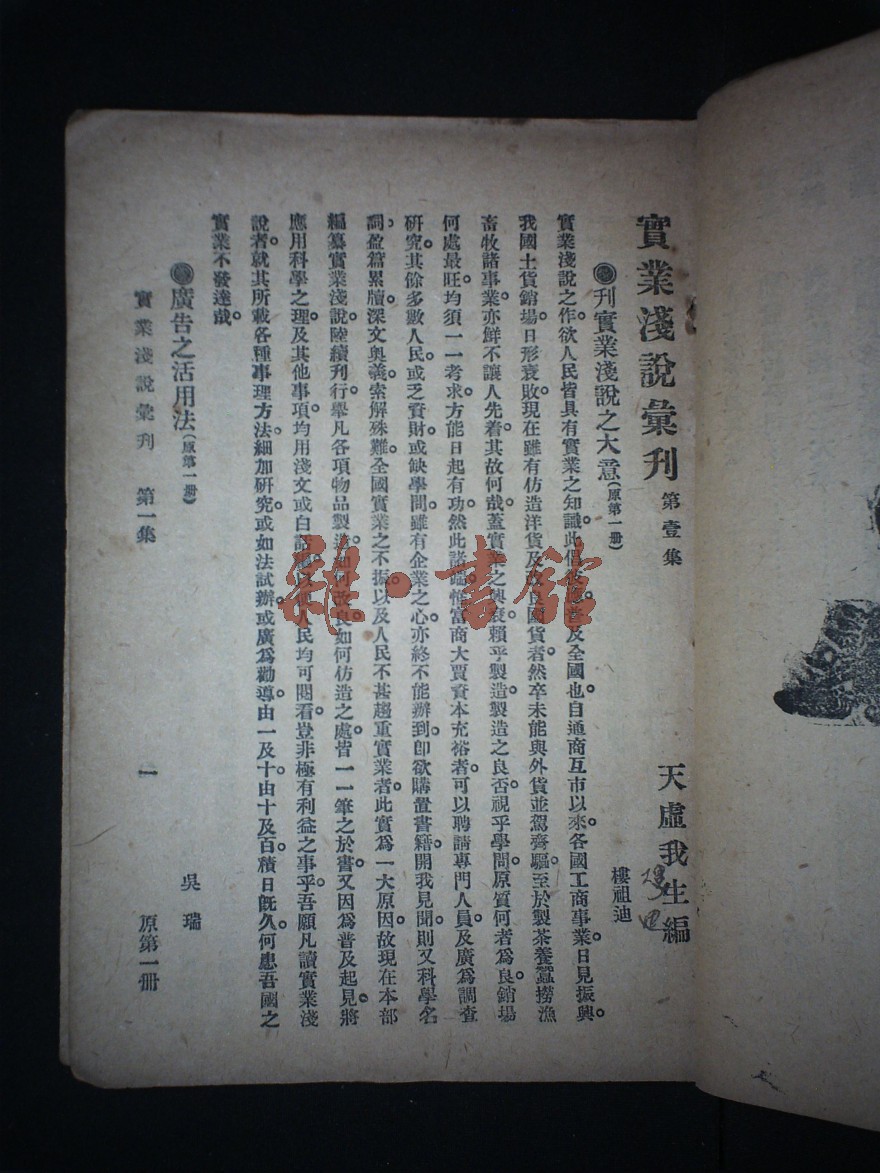 實業淺說彙刊 第壹集 天虛我生編
◉刊實業淺說之大意(原第一册) 樓祖迪
實業淺說之作。欲人民皆具有實業之知識。此倡彼 者及全國也。自通商互市以來。各國工商事業。日見振興。
我國土貨銷場。日形衰敗。現在雖有仿造洋貨及改良國貨者。然卒未能與外貨並駕齊驅。至於製茶養蠶撈漁
畜牧諸事業。亦鮮不讓人先着。其故何哉。蓋實業之興衰。賴乎製造。製造之良否。視乎學問。原質何者爲良。銷場
何處最旺。均須一一考求。方能日起有功。然此諸端。惟富商大賈。資本充裕者。可以聘請專門人員。及廣爲調查
研究。其餘多數人民。或乏資財。或缺學問。雖有企業之心。亦終不能辦到。卽欲購置書籍。開我見聞。則又科學名
詞。盈篇累牘。深文奥義。索解殊難。全國實業之不振。以及人民不甚趨重實業者。此實爲一大原因。故現在本部
編纂實業淺說。陸續刊行。舉凡各項物品製造。如何改良。如何仿造之處。皆一一筆之於書。又因爲普及起見。將
應用科學之理。及其他事項。均用淺文或白話 以 人民均可閱看。豈非極有利益之事乎。吾願凡讀實業淺
說者。就其所載各種事理方法。細加研究。或如法試辦。或廣爲勸導。由一及十。由十及百。積日旣久。何患吾國之
實業不發達哉。
◉廣告之活用法(原第一册) 吳瑞
實業淺說彙刊 第一集 一 原第一册
雜·書館